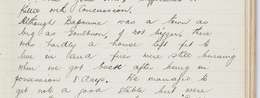 killed with Concussion.
Although Bapaume was a town as
big as Goulburn, if not bigger there
was hardly a house left fit to
live in and fires were still burning
when we got back after being in
possession 8 days. We managed to
get not a good stable but were